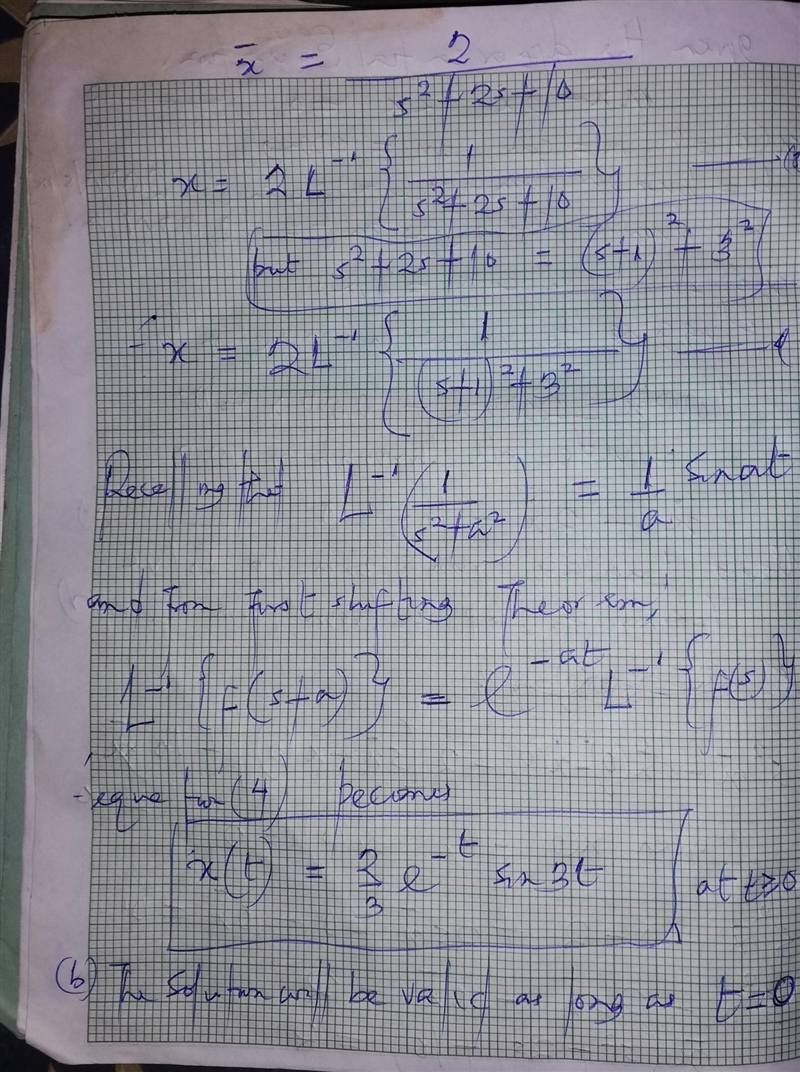 x̄ = 2 / (s² + 2s + 10)
x = 2L⁻¹ { 1 / (s² + 2s + 10) }
but s² + 2s + 10 = (s+1)² + 3²
∴ x = 2L⁻¹ { 1 / ((s+1)² + 3²) }
Recalling that L⁻¹ ( 1 / (s² + a²) ) = 1/a sin at
and from first shifting Theorem,
L⁻¹ {F(s+a)} = e^(-at) L⁻¹ {f(s)}
equation (4) becomes
x(t) = 2/3 e^(-t) sin 3t at t≥0
(b) The solution will be valid as long as t=0